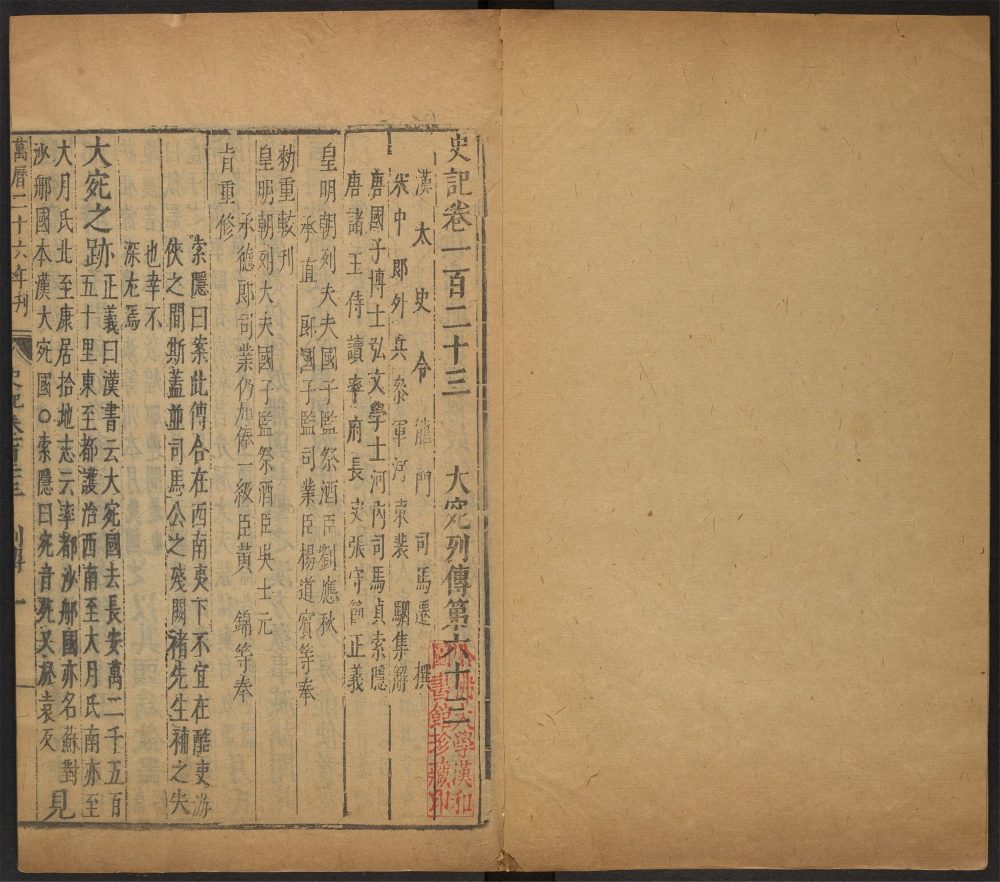 史記卷一百二十三　大宛列傳第六十三
漢太史令龍門司馬遷撰
宋中郎外兵參軍河東裴駰集解
唐國子博士弘文學士河內司馬貞索隱
唐諸王侍讀率府長史張守節正義
皇明朝列大夫國子監祭酒臣劉應秋
承直郎國子監司業臣楊道賓等奉
勑重較刊
皇明朝列大夫國子監祭酒臣吳士元
承德郎司業仍加俸一級臣黃錦等奉
旨重修
索隱曰案此傳合在西南夷下不宜在酷吏游
俠之間斯蓋並司馬公之殘闕褚先生補之失
也幸不
深尤焉
大宛之跡
正義曰漢書云大宛國去長安萬二千五百
五十里東至都護治西南至大月氏南亦至
大月氏北至康居括地志云率都沙那國亦名蘇對
沙那國本漢大宛國○索隱曰宛音菀又於袁反
見
萬曆二十六年刊
史記卷百二十三
列傳
一
哈佛大學漢和
圖書館珍藏印